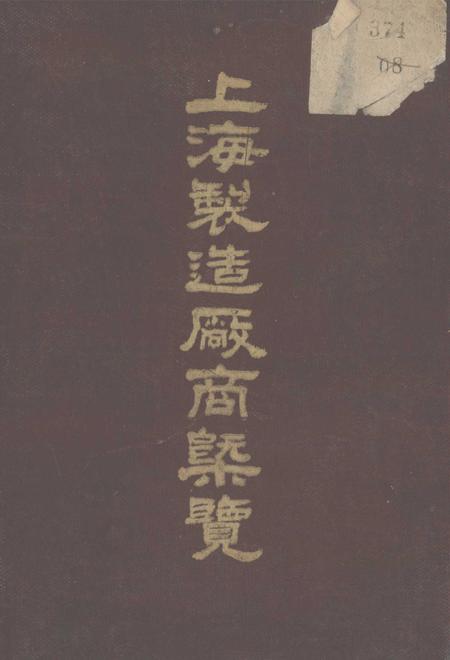 374
08
上海製造廠商槩覽